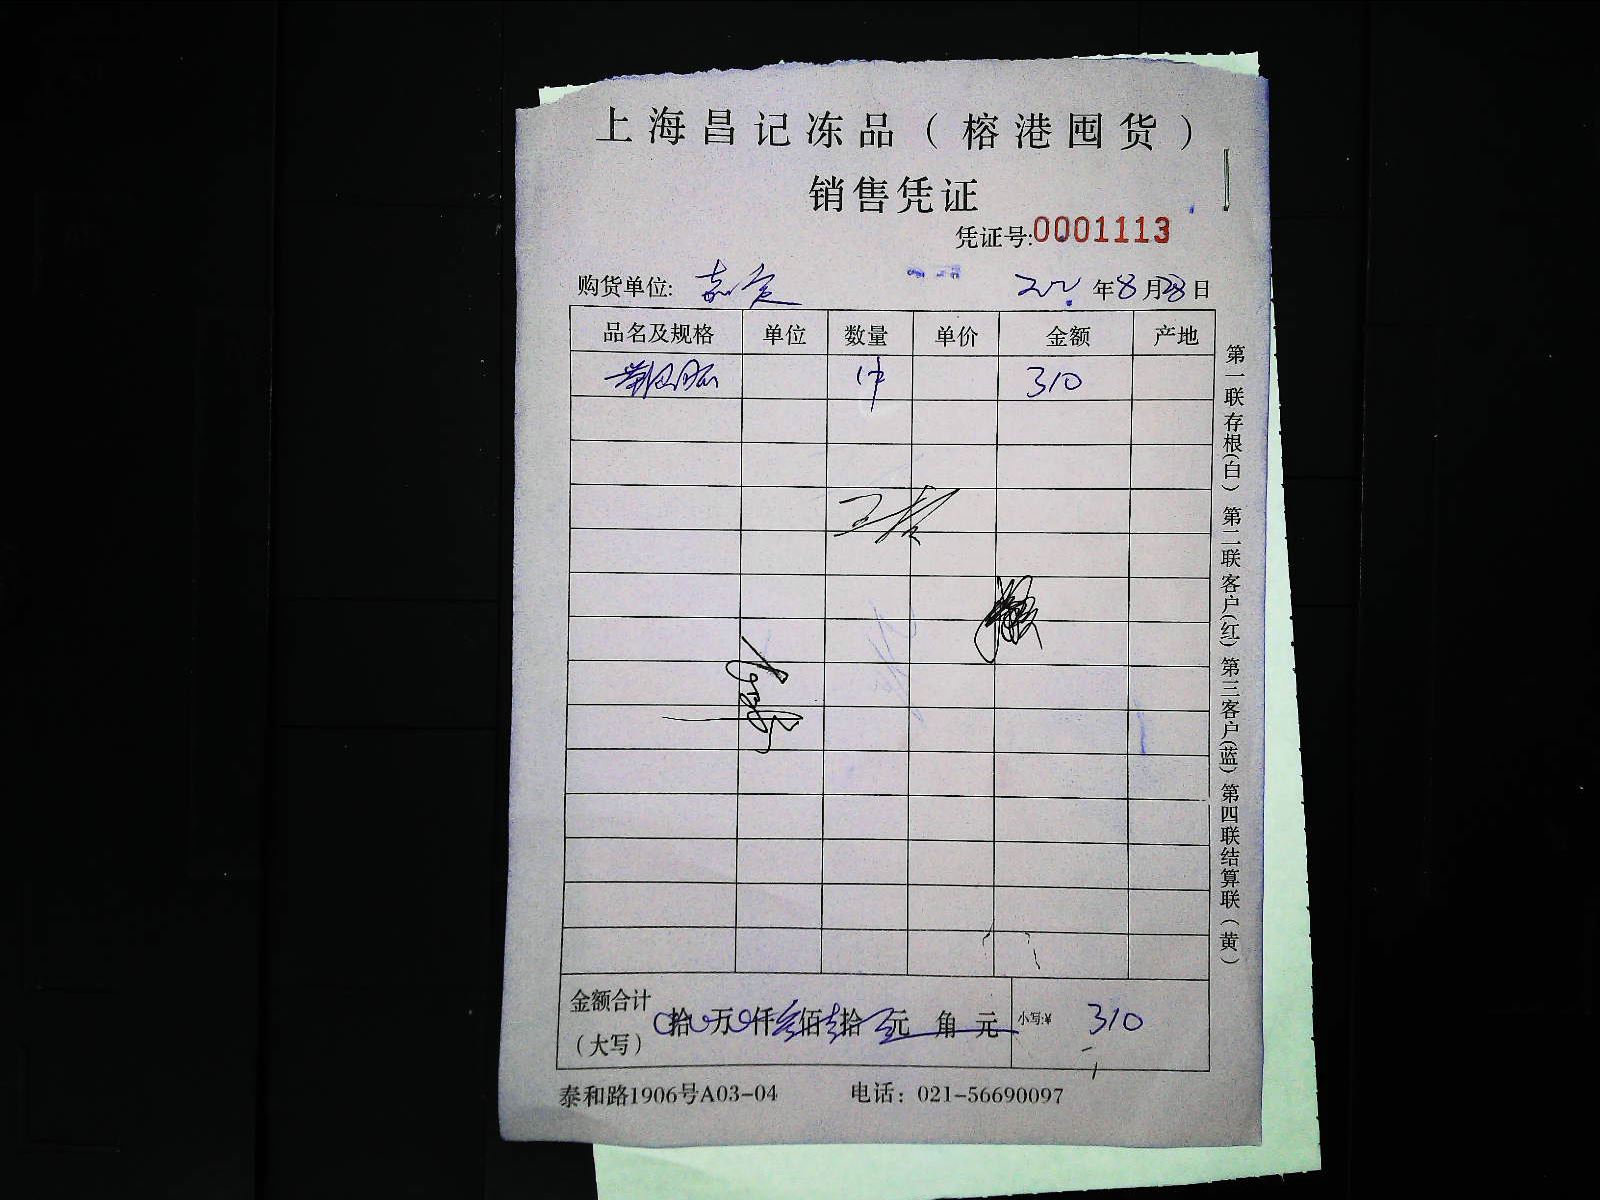 上海昌记冻品（榕港囤货）
销售凭证
凭证号:0001113
购货单位: 嘉定 年8月28日
品名及规格 单位 数量 单价 金额 产地
1件 310
金额合计
（大写） 拾 万 仟 叁佰 壹拾 元 角 元 小写:¥ 310
泰和路1906号A03-04 电话：021-56690097
第一联存根(白) 第二联客户(红) 第三客户(蓝) 第四联结算联(黄)